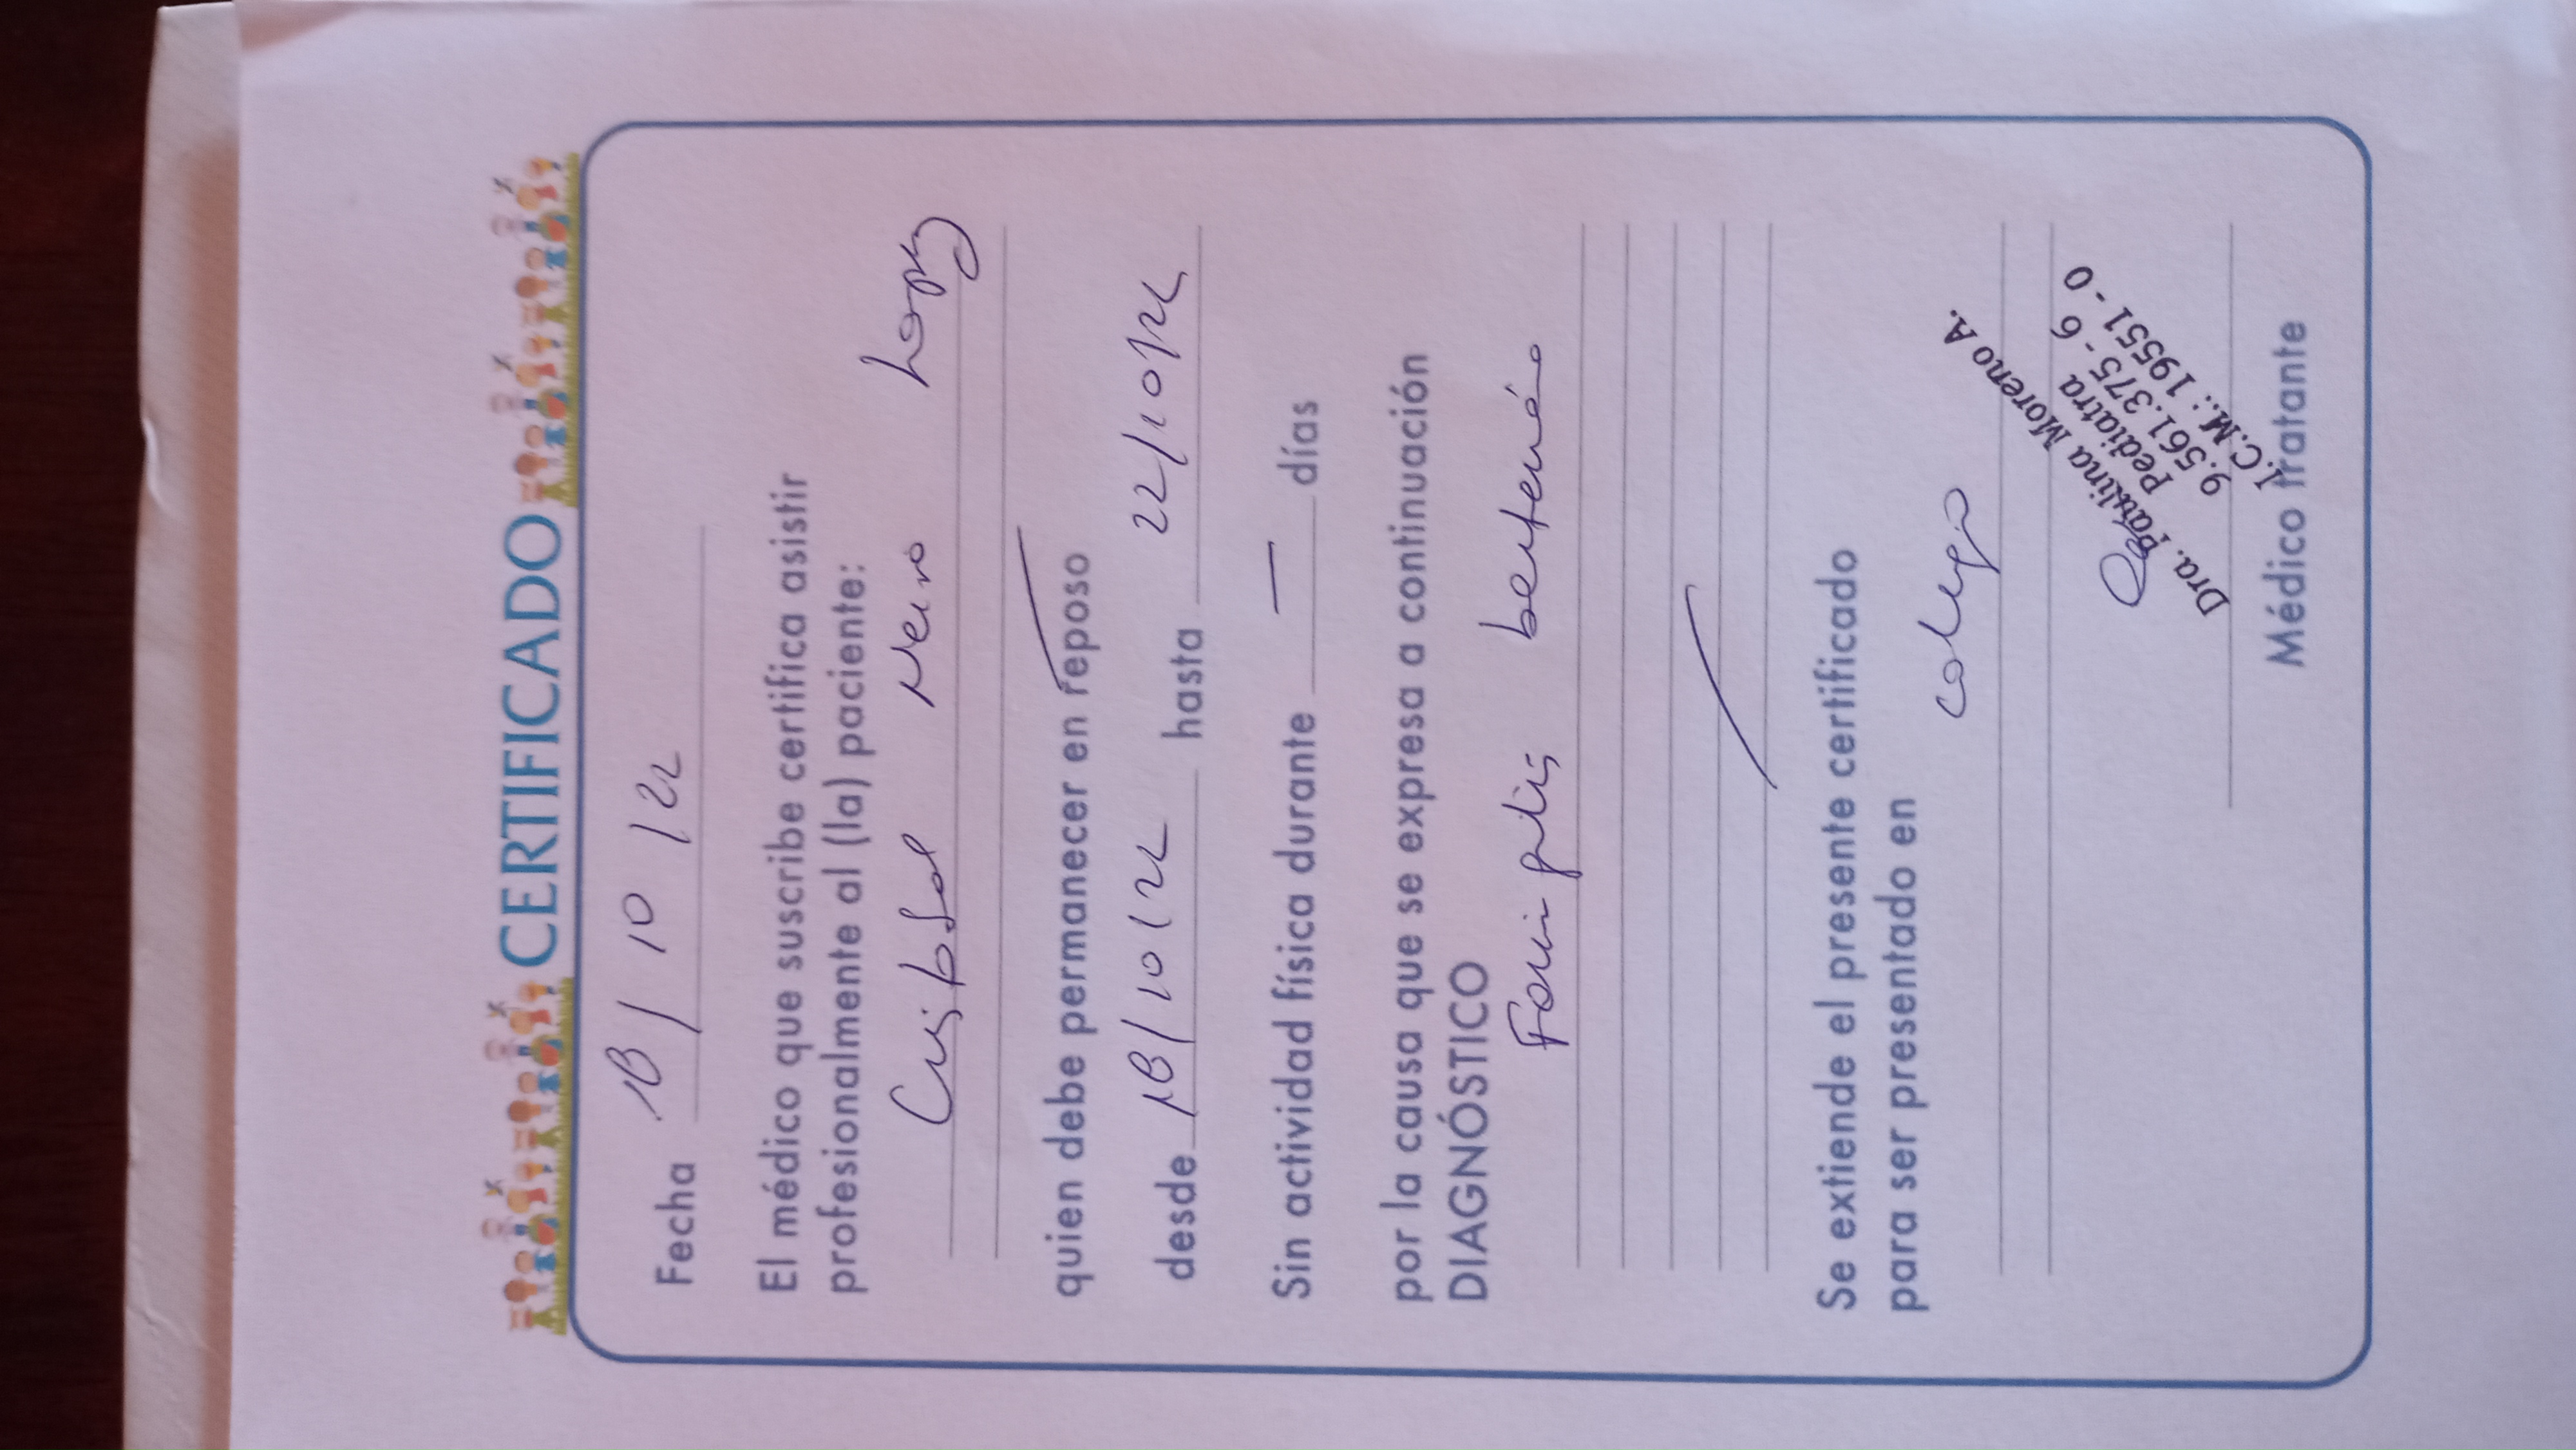 CERTIFICADO
Fecha 18 / 10 / 22
El médico que suscribe certifica asistir
profesionalmente al (la) paciente:
Cristobal Neira Lopez
quien debe permanecer en reposo
desde 18/10/22 hasta 22/10/22
Sin actividad física durante — días
por la causa que se expresa a continuación
DIAGNÓSTICO
Faringitis bacteriana
Se extiende el presente certificado
para ser presentado en
colegio
Dra. Paulina Moreno A.
Pediatra
9.561.375 - 6
I.C.M.: 19551 - 0
Médico tratante